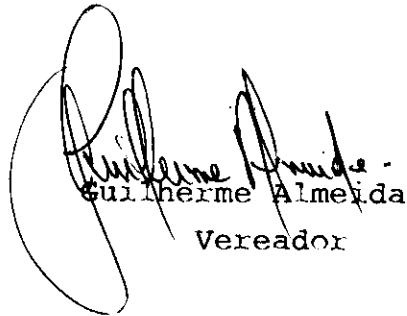 Guilherme Almeida -
Guilherme Almeida
Vereador